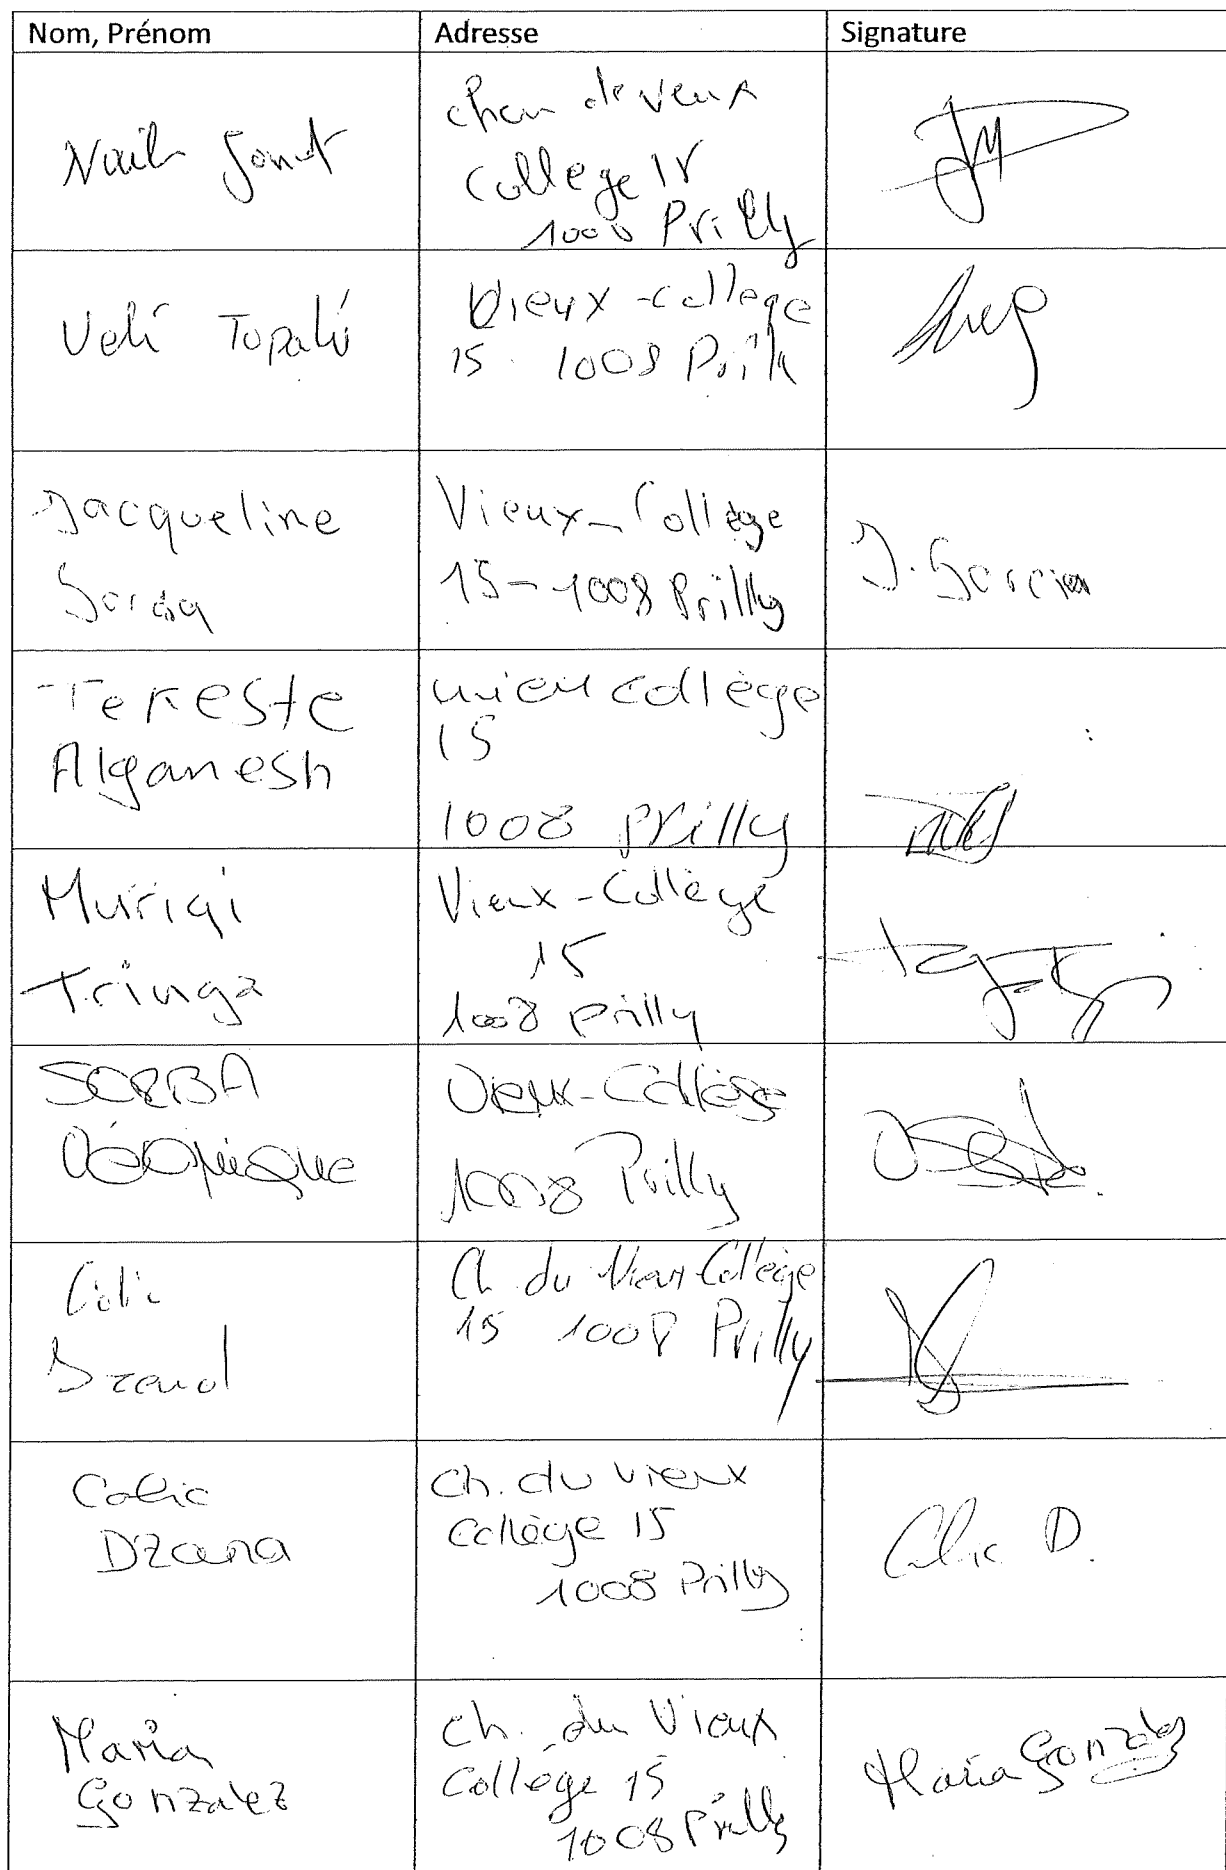 Nom, Prénom
Adresse
Signature
Nail
chem de veux
College 15
1008 Prilly
Veli Topalli
Vieux-college
15 1008 Prilly
Jacqueline
Garcia
Vieux-Collège
15-1008 Prilly
J. Garcia
Tekeste
Alganesh
collège
15
1008 Prilly
Muriqi
Tringa
Vieux-Collège
15
1008 Prilly
SORBA
Véronique
Vieux-Collège
1008 Prilly
Ch. du Vieux Collège
15 1008 Prilly
Calic
Dzana
Ch. du vieux
Collège 15
1008 Prilly
Calic D.
Maria
Gonzalez
Ch. du Vieux
Collège 15
1008 Prilly
Maria Gonzalez